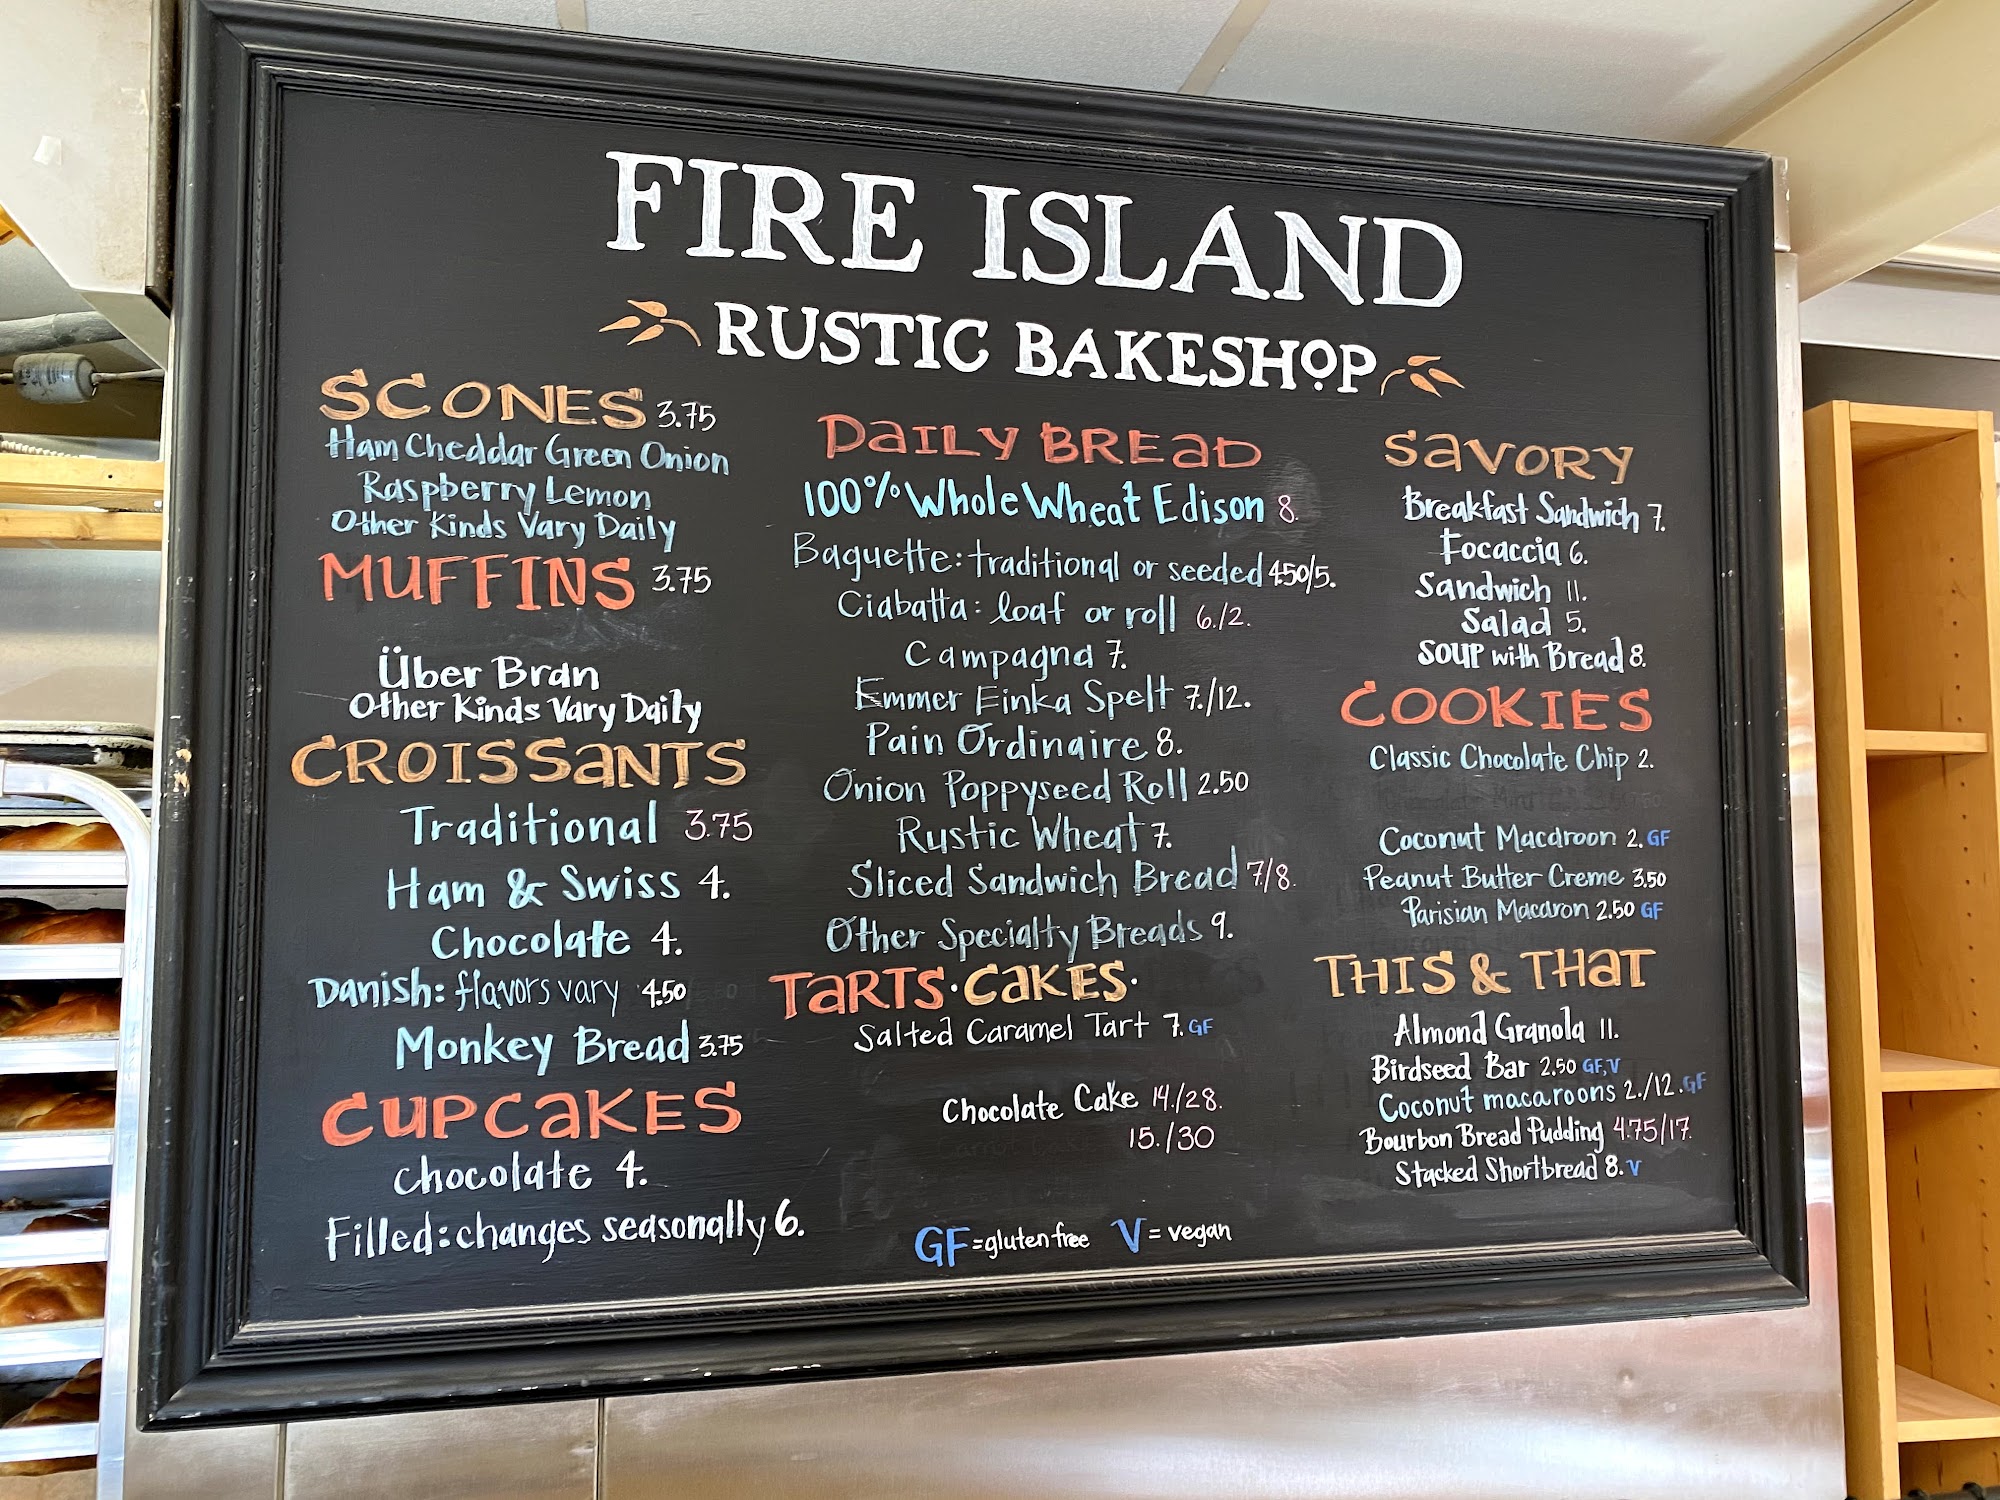 FIRE ISLAND
RUSTIC BAKESHOP
SCONES 3.75
Ham Cheddar Green Onion
Raspberry Lemon
Other Kinds Vary Daily
MUFFINS 3.75
Über Bran
Other Kinds Vary Daily
CROISSANTS
Traditional 3.75
Ham & Swiss 4.
Chocolate 4.
Danish: flavors vary 4.50
Monkey Bread 3.75
CUPCAKES
Chocolate 4.
Filled: changes seasonally 6.
DAILY BREAD
100% Whole Wheat Edison 8.
Baguette: traditional or seeded 4.50/5.
Ciabatta: loaf or roll 6./2.
Campagna 7.
Emmer Einka Spelt 7./12.
Pain Ordinaire 8.
Onion Poppyseed Roll 2.50
Rustic Wheat 7.
Sliced Sandwich Bread 7/8.
Other Specialty Breads 9.
TARTS · CAKES ·
Salted Caramel Tart 7. GF
Chocolate Cake 14./28.
15./30
GF = gluten free V = vegan
SAVORY
Breakfast Sandwich 7.
Focaccia 6.
Sandwich 11.
Salad 5.
SOUP with Bread 8.
COOKIES
Classic Chocolate Chip 2.
Coconut Macaroon 2. GF
Peanut Butter Creme 3.50
Parisian Macaron 2.50 GF
THIS & THAT
Almond Granola 11.
Birdseed Bar 2.50 GF, V
Coconut macaroons 2./12. GF
Bourbon Bread Pudding 4.75/17.
Stacked Shortbread 8. V